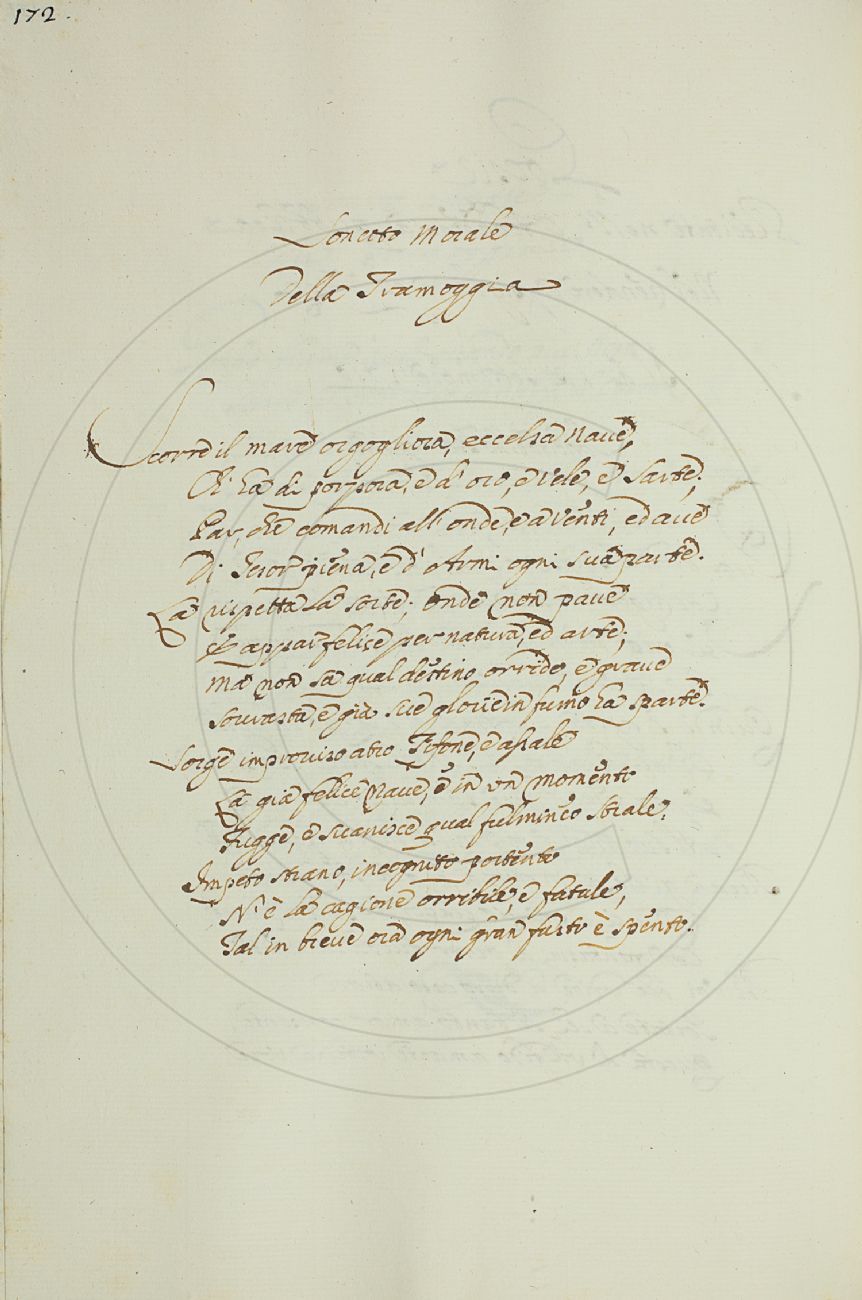 172.
Sonetto Morale
Della Tramoggia
Scorre il mare orgogliosa, eccelsa Nave,
Ch' ha di porpora, e d' oro, e vele, e Sarte;
Par, che comandi all' onde, e a Venti, ed ave
Di Tesor piena, e d' Armi ogni sua parte.
La rispetta la sorte; onde non pave
E appar felice per natura, ed arte;
Ma non sa qual destino orrido, e grave
Sovrasta, e già sue glorie in fumo ha sparte.
Sorge improviso atro Tifone, e assale
La già felice Nave, e in un momento
Fugge, e svanisce qual fulmineo strale;
Impeto strano, incognito portento
N' è la cagione orribile, e fatale,
Tal in breve ora ogni gran fasto è spento.